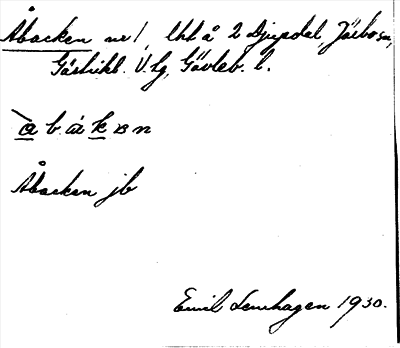 Åbacken nr 1, lht å 2 Djupdal, Järbo sn,
Gästrikl. V. tg, Gävleb. l.
åbákɐn
Åbacken jb
Emil Lenhagen 1930.